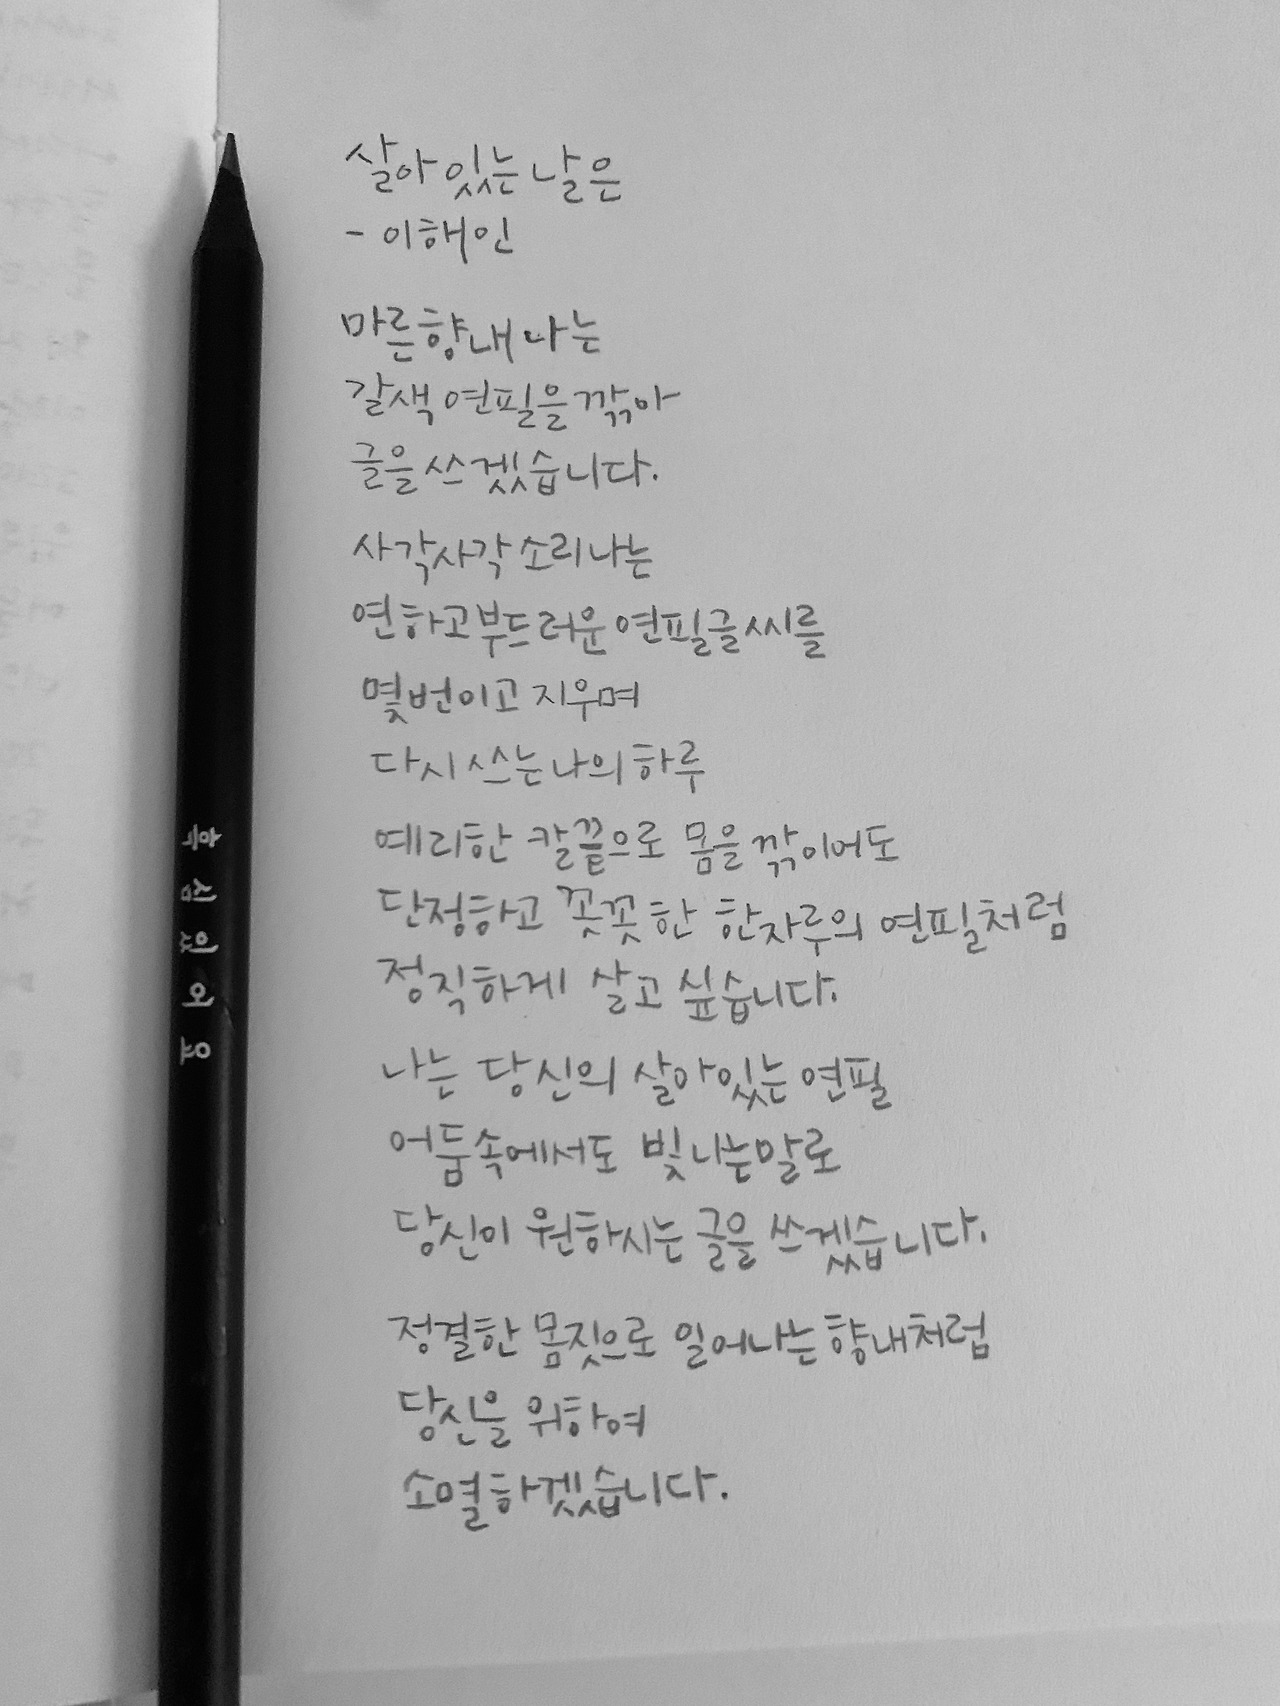 살아 있는 날은
- 이해인
마른 향내 나는
갈색 연필을 깎아
글을 쓰겠습니다.
사각사각 소리나는
연하고 부드러운 연필글씨를
몇번이고 지우며
다시 쓰는 나의 하루
예리한 칼끝으로 몸을 깎이어도
단정하고 꼿꼿한 한자루의 연필처럼
정직하게 살고 싶습니다.
나는 당신의 살아있는 연필
어둠속에서도 빛나는 말로
당신이 원하시는 글을 쓰겠습니다.
정결한 몸짓으로 일어나는 향내처럼
당신을 위하여
소멸하겠습니다.
흑심 있어요